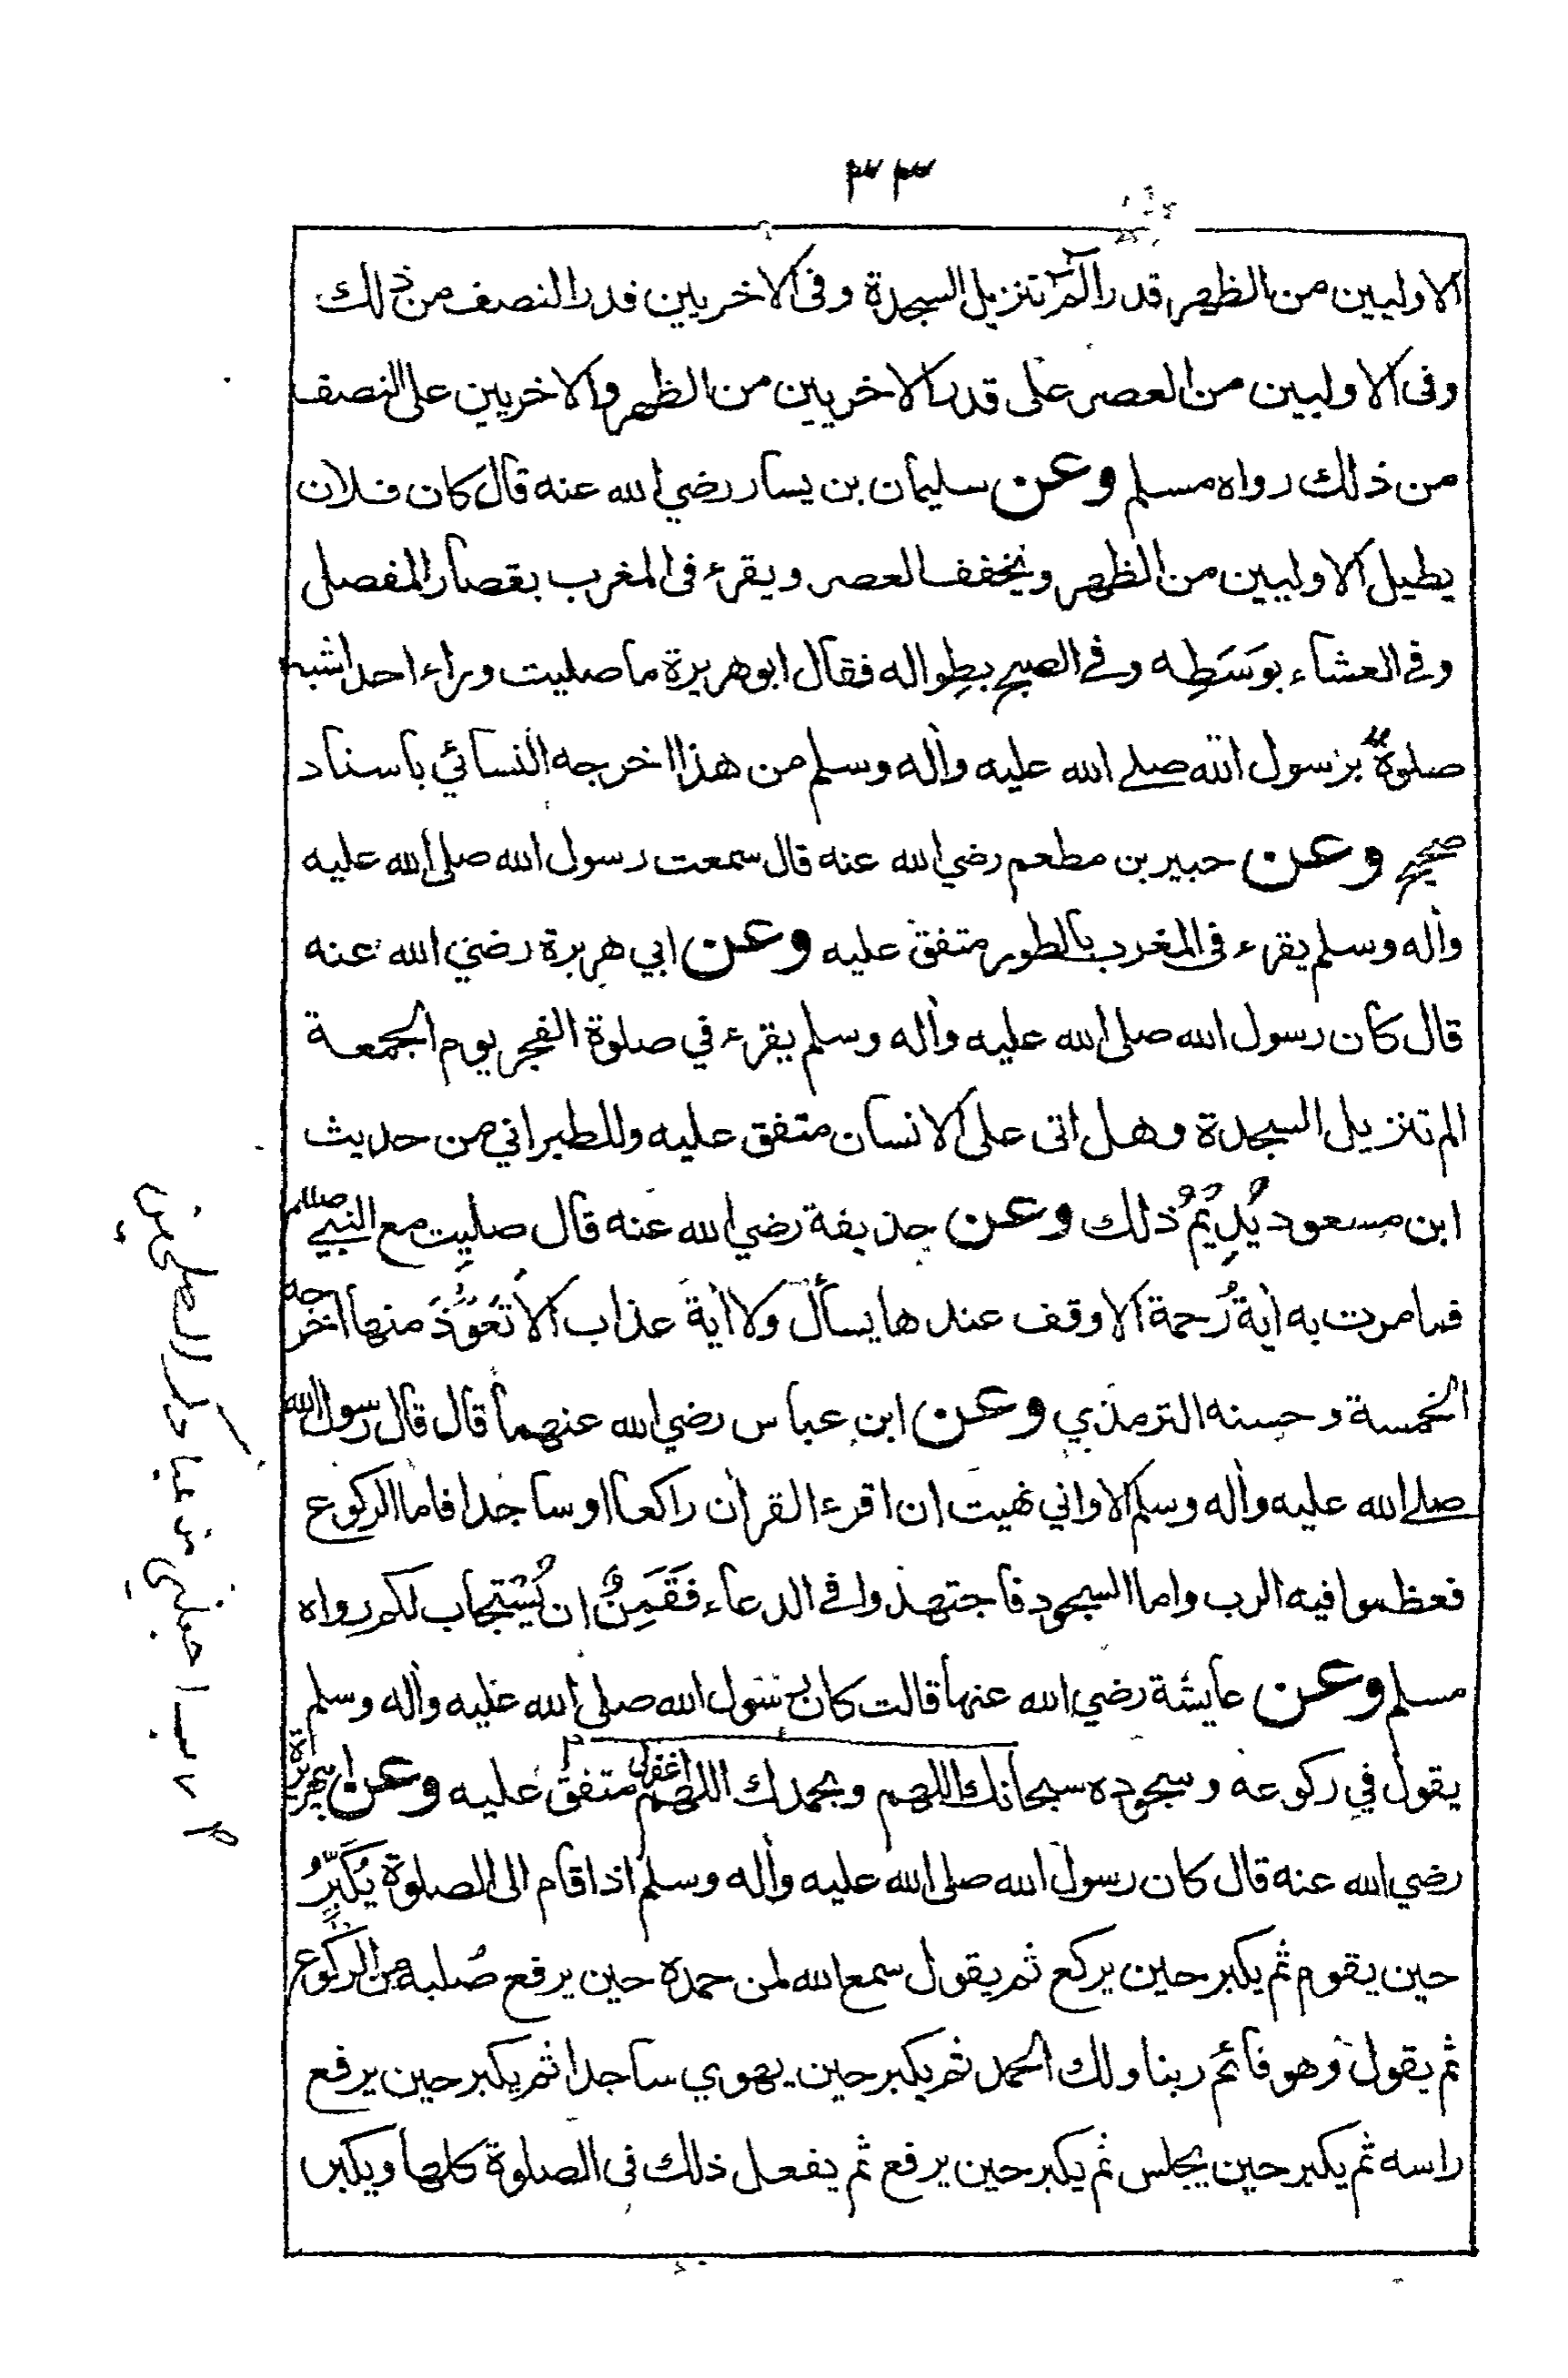 ٣٣
الاوليين من الظهر قدر آلمۤ تنزيل السجدة وفى الاخريين قدر النصف من ذلك
وفى الاوليين من العصر على قدر الاخريين من الظهر والاخريين على النصف
من ذلك رواه مسلم وعن سليمان بن يسار رضي الله عنه قال كان فلان
يطيل الاوليين من الظهر ويخفف العصر ويقرء فى المغرب بقصار المفصل
وفي العشاء بوَسَطِه وفي الصبح بطِواله فقال ابوهريرة ما صليت وراء احد اشبه
صلوةً برسول الله صلى الله عليه وأله وسلم من هذا اخرجه النسائي باسناد
صحيح وعن جبير بن مطعم رضي الله عنه قال سمعت رسول الله صلى الله عليه
وأله وسلم يقرء فى المغرب بالطور متفق عليه وعن ابي هريرة رضي الله عنه
قال كان رسول الله صلى الله عليه وأله وسلم يقرء في صلوة الفجر يوم الجمعة
الم تنزيل السجدة وهل اتى على الانسان متفق عليه وللطبراني من حديث
ابن مسعود يُدِيمُ ذلك وعن حذيفة رضي الله عنه قال صليت مع النبي صللم
فما مرت به أية رُحمة الا وقف عندها يسأل ولا أية عذاب الا تَعَوَّذَ منها اخرجه
الخمسة وحسنه الترمذي وعن ابن عباس رضي الله عنهما قال قال رسول الله
صلى الله عليه وأله وسلم الا واني نهيت ان اقرء القرأن راكعا او ساجدا فاما الركوع
فعظموا فيه الرب واما السجود فاجتهدوا في الدعاء فَقَمِنٌ ان يُسْتجاب لكم رواه
مسلم وعن عايشة رضي الله عنها قالت كان رسول الله صلى الله عليه وأله وسلم
يقول في ركوعه وسجوده سبحانك اللهم وبحمدك اللهم اغفرلي متفق عليه وعن ابي هريرة
رضي الله عنه قال كان رسول الله صلى الله عليه وأله وسلم اذا قام الى الصلوة يُكَبِّرُ
حين يقوم ثم يكبر حين يركع ثم يقول سمع الله لمن حمده حين يرفع صُلبه من الركوع
ثم يقول وهو قائم ربنا ولك الحمد ثم يكبر حين يهوي ساجدا ثم يكبر حين يرفع
راسه ثم يكبر حين يجلس ثم يكبر حين يرفع ثم يفعل ذلك فى الصلوة كلها ويكبر